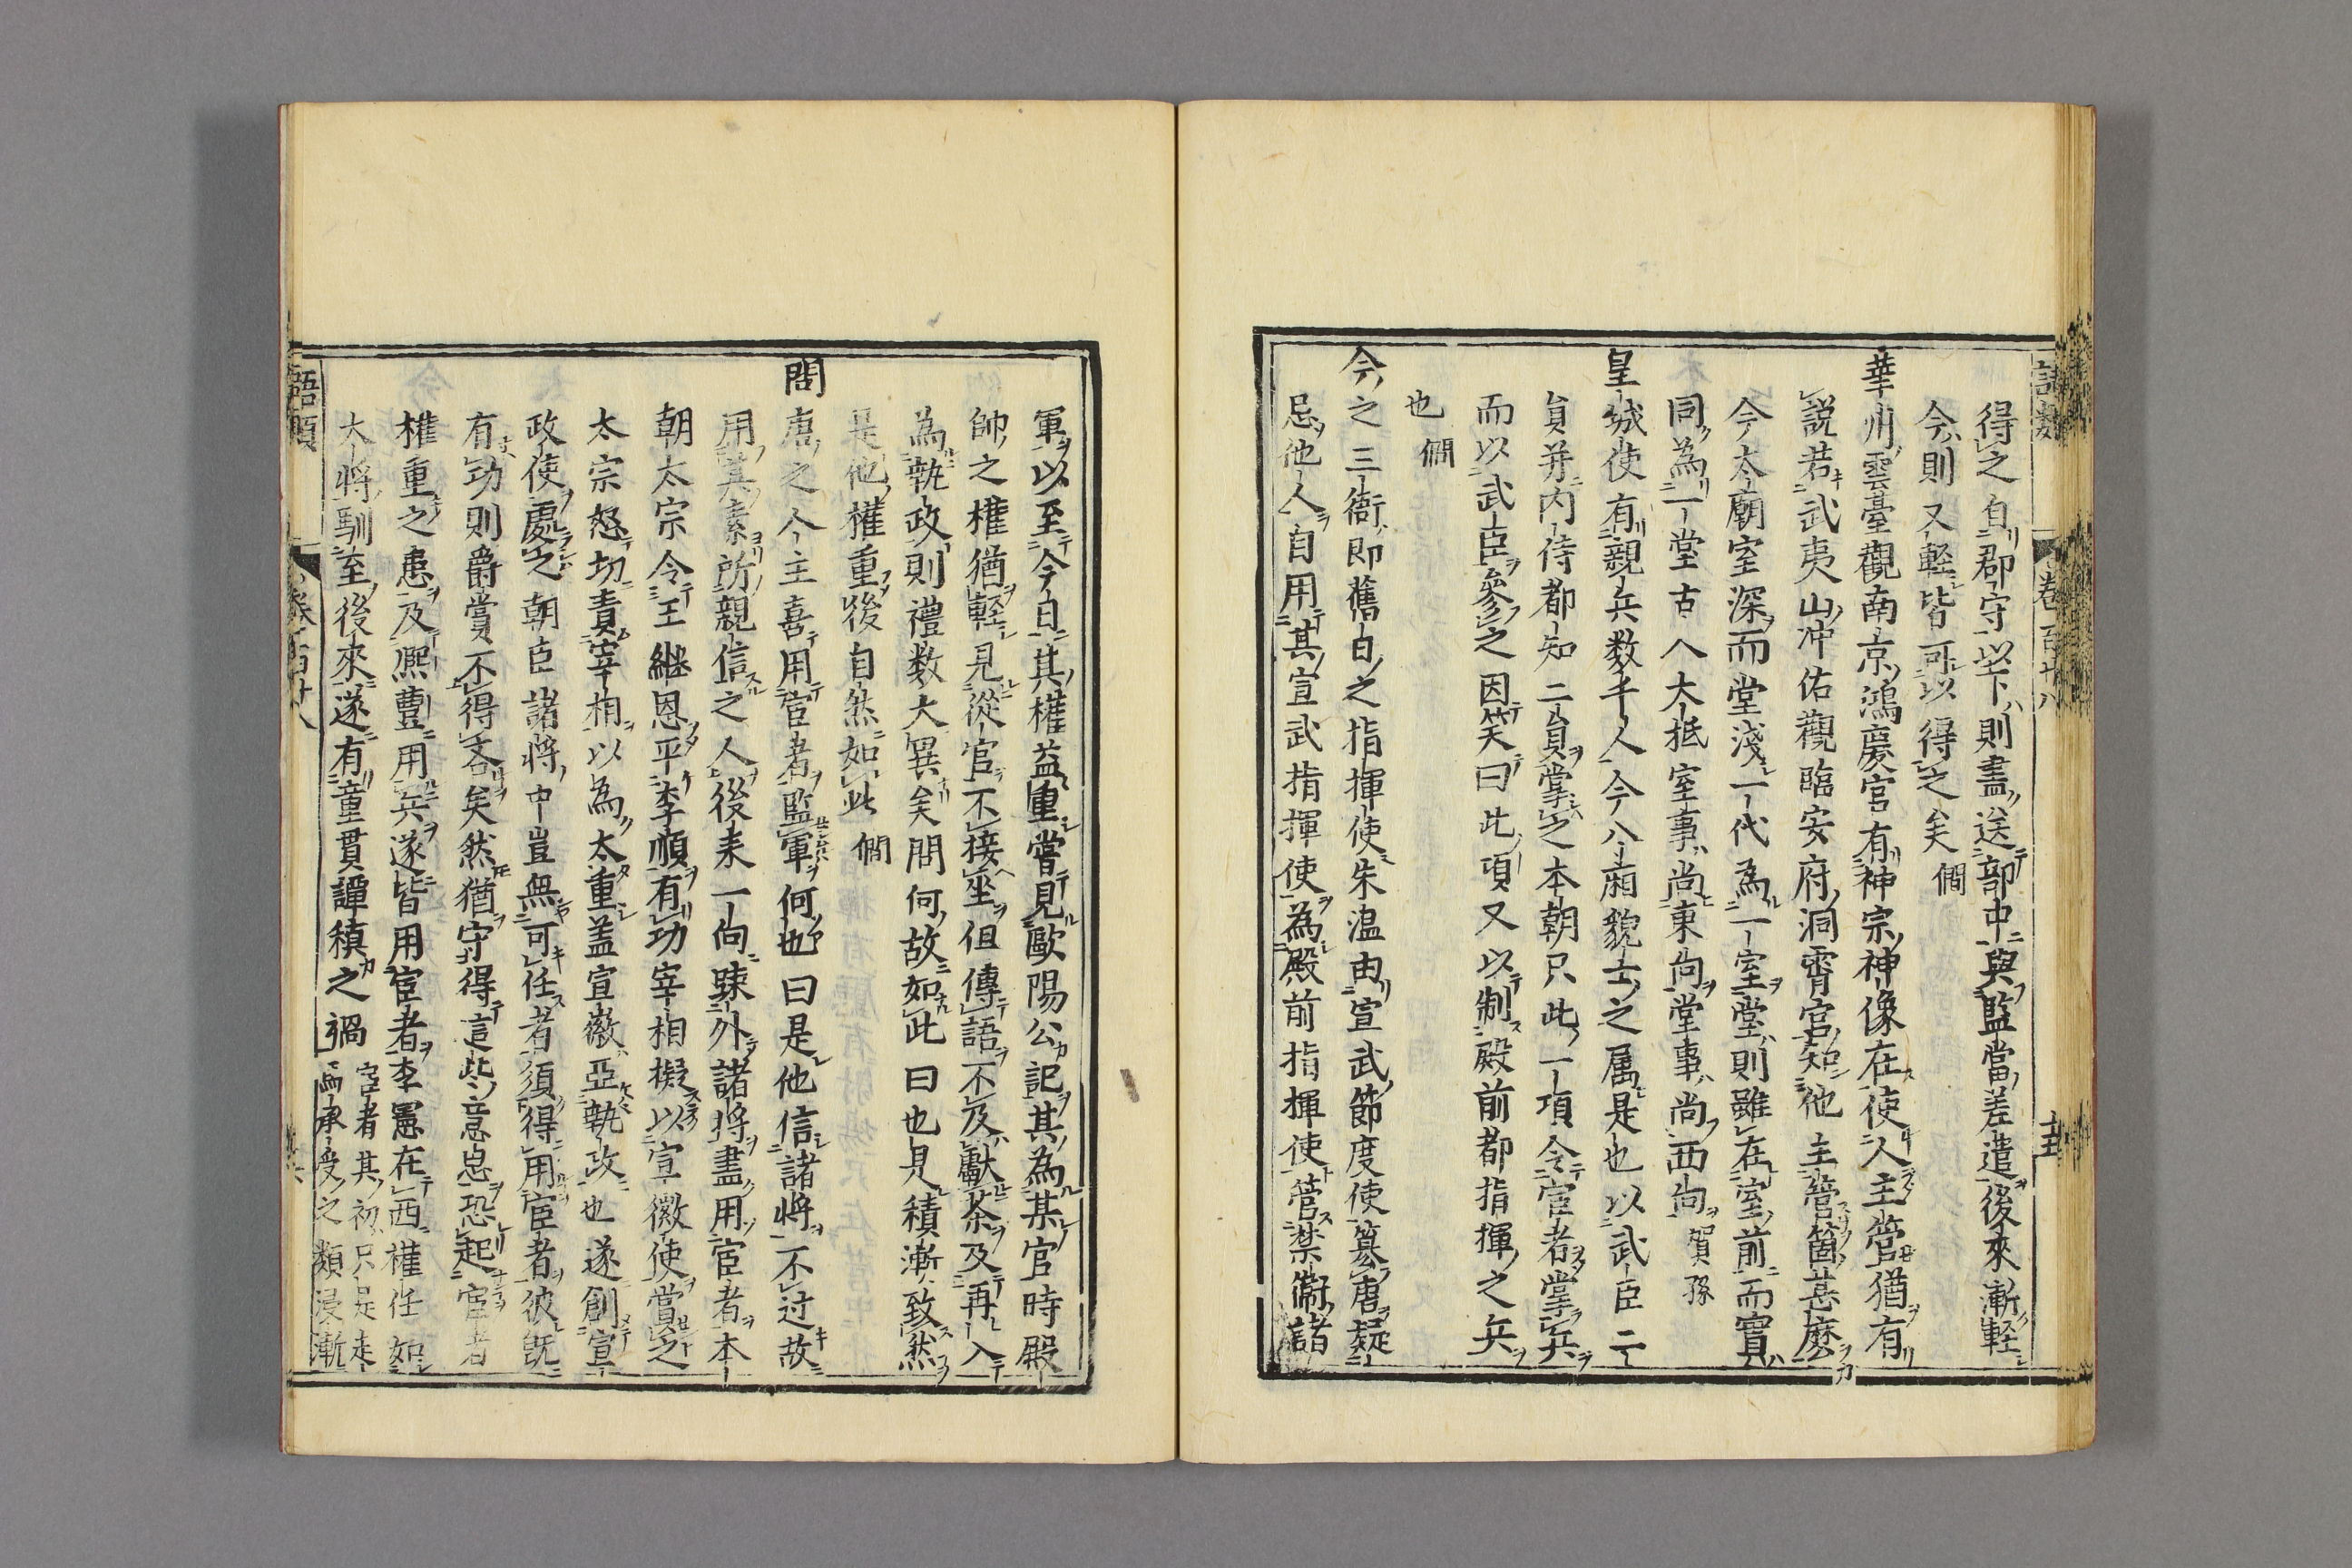 得之自郡守以下則盡送部中與監當差遣後來漸輕
今則又輕皆可以得之矣 僩
華州雲臺觀南京鴻慶宮有神宗神像在使人主管猶有
說若武夷山冲佑觀臨安府洞霄宮知他主管箇甚麽
今太廟室深而堂淺一代為一室堂則雖在室前而實
同為一堂古人大抵室事尚東向堂事尚西向 賀孫
皇城使有親兵数千人今八廂貌士之属是也以武臣二
員并内侍都知二員掌之本朝只此一項令宦者掌兵
而以武臣參之因笑曰此項又以制殿前都指揮之兵
也 僩
今之三衙即舊日之指揮使朱温由宣武節度使簒唐疑
忌他人自用其宣武指揮使為殿前指揮使管禁衛諸
軍以至今日其權益重嘗見歐陽公記其為某官時殿
帥之權猶軽見從官不接坐但傳語不及獻茶及再入
為執政則禮数大異矣問何故如此曰也只積漸致然
是他權重後自然如此 僩
問唐之人主喜用宦者監軍何也曰是他信諸將不过故
用其素所親信之人後来一向踈外諸將盡用宦者本
朝太宗令王繼恩平李順有功宰相擬以宣徽使賞之
太宗怒切責宰相以為太重盖宣徽亞執政也遂創宣
政使處之朝臣諸將中豈無可任者須得用宦者彼既
有功則爵賞不得吝矣然猶守得這些意思恐起宦者
權重之患及熈豊用兵遂皆用宦者李憲在西權任如
大將馴至後來遂有童貫譚稹之禍 宦者其初只是走
馬承受之類浸漸
語類
卷一百廿八
卷百廿八